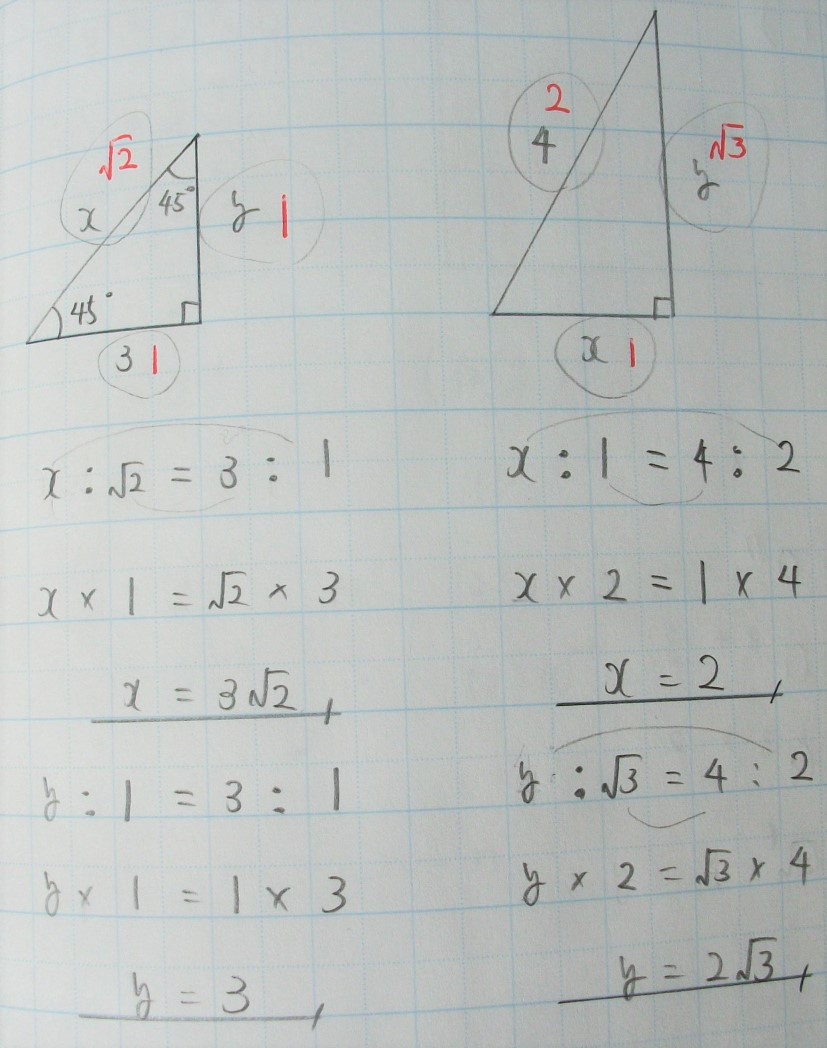 √2
x
45°
y 1
45°
3 1
2
4
√3
y
x 1
x : √2 = 3 : 1
x × 1 = √2 × 3
x = 3√2
y : 1 = 3 : 1
y × 1 = 1 × 3
y = 3
x : 1 = 4 : 2
x × 2 = 1 × 4
x = 2
y : √3 = 4 : 2
y × 2 = √3 × 4
y = 2√3